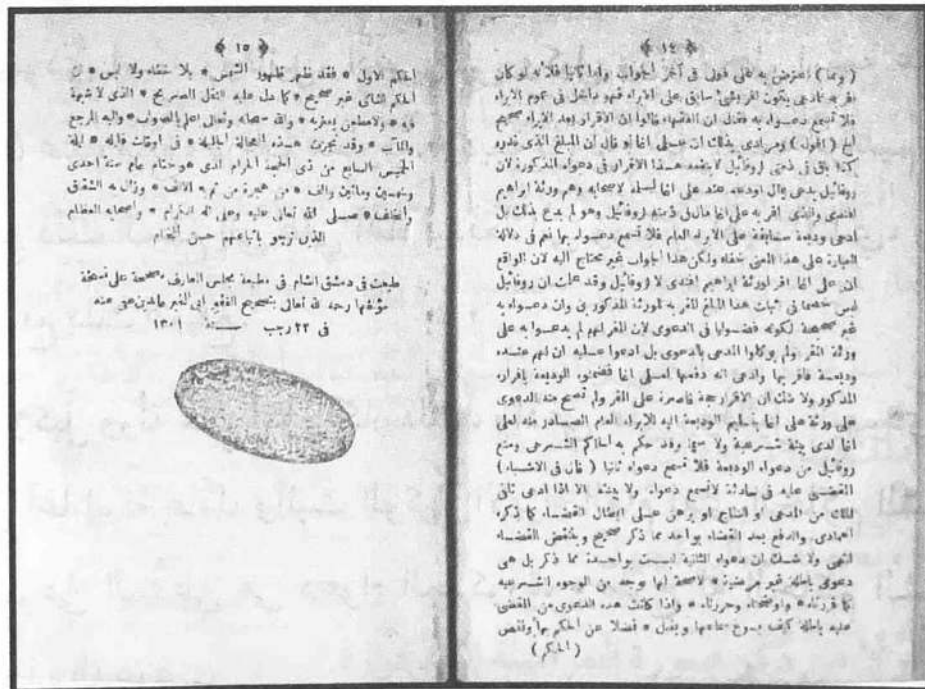 ﴿ ١٤ ﴾
( ومما ) اعترض به على قولى فى آخر الجواب واما ثانيا فلأنه لو كان
اقر به ثم ادعى بكون اقر بشئ سابق على الابراء فهو داخل فى عموم الابراء
فلا تسمع دعواه به فقال ان الفقهاء قالوا ان الاقرار بعد الابراء صحيح
الخ ( اقول ) ومرادى بذلك ان على اغا لو قال ان المبلغ الذى قدره
كذا باق فى ذمتى لروفائيل لا ينفعه هذا الاقرار فى دعواه المذكورة لان
روفائيل يدعى بمال اودعه عند على اغا ليسلمه لاصحابه وهم ورثة ابراهيم
افندى والذى اقر به على اغا مال فى ذمته لروفائيل وهو لم يدع بذلك بل
ادعى وديعة سابقة على الابراء العام فلا تسمع دعواه بها نعم فى دلالة
العبارة على هذا المعنى خفاء ولكن هذا الجواب غير محتاج اليه لان الواقع
ان على اغا اقر لورثة ابراهيم افندى لا لروفائيل وقد علمت ان روفائيل
ليس خصما فى اثبات هذا المبلغ المقر به للورثة المذكورين وان دعواه به
غير صحيحة لكونه فضوليا فى الدعوى لان المقر لهم لم يدعوا به على
ورثة المقر ولم يوكلوا المدعى بالدعوى بل ادعوا عليه ان لهم عنده
وديعة فاقر بها وادعى انه دفعها لعلى اغا فضمنوه الوديعة باقراره
المذكور ولا شك ان الاقرار حجة قاصرة على المقر ولم تصح منه الدعوى
على ورثة على اغا بتسليم الوديعة اليه للابراء العام الصادر منه لعلى
اغا لدى بينة شرعية ولا سيما وقد حكم به الحاكم الشرعى ومنع
روفائيل من دعواه الوديعة فلا تسمع دعواه ثانيا ( قال فى الاشباه )
المقضى عليه فى حادثة لا تسمع دعواه ولا بينته الا اذا ادعى تلقى
الملك من المدعى او النتاج او برهن على ابطال القضاء كما ذكره
العمادى والدفع بعد القضاء بواحد مما ذكر صحيح وينقض القضاء
انتهى ولا شك ان دعواه الثانية ليست بواحدة مما ذكر بل هى
دعوى باطلة غير مرضية * لا صحة لها بوجه من الوجوه الشرعيه *
كما قررناه * واوضحناه وحررناه * واذا كانت هذه الدعوى من المقضى
عليه باطلة كيف يسوغ سماعها ويقبل * فضلا عن الحكم بها ونقض
( الحكم )
﴿ ١٥ ﴾
الحكم الاول * فقد ظهر ظهور الشمس * بلا خفاء ولا لبس * ان
الحكم الثانى غير صحيح * كما دل عليه النقل الصريح * الذى لا شبهة
فيه * ولا مطعن يعتريه * والله سبحانه وتعالى اعلم بالصواب * واليه المرجع
والمآب * وقد نجزت هذه العجالة الجليلة * فى اوقات قليله * ليلة
الخميس السابع من ذى الحجة الحرام الذى هو ختام عام سنة احدى
وخمسين ومائتين والف * من هجرة من تم به الالف * وزال به الشقاق
والخلف * صلى الله تعالى عليه وعلى آله الكرام * واصحابه العظام *
الذين نرجو باتباعهم حسن الختام
طبعت فى دمشق الشام فى مطبعة مجلس المعارف مصححة على نسخة
مؤلفها رحمه الله تعالى بتصحيح الفقير ابى الخير عابدين عفى عنه
فى ٢٢ رجب سنة ١٣٠١